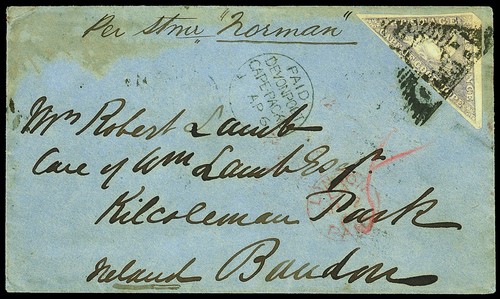 Per Stmr "Norman"
POSTAGE
PAID
DEVONPORT
CAPE PACKET
AP 6
Mrs Robert Lamb
Care of Wm Lamb Esqr.
Kilcoleman Park
Ireland Bandon